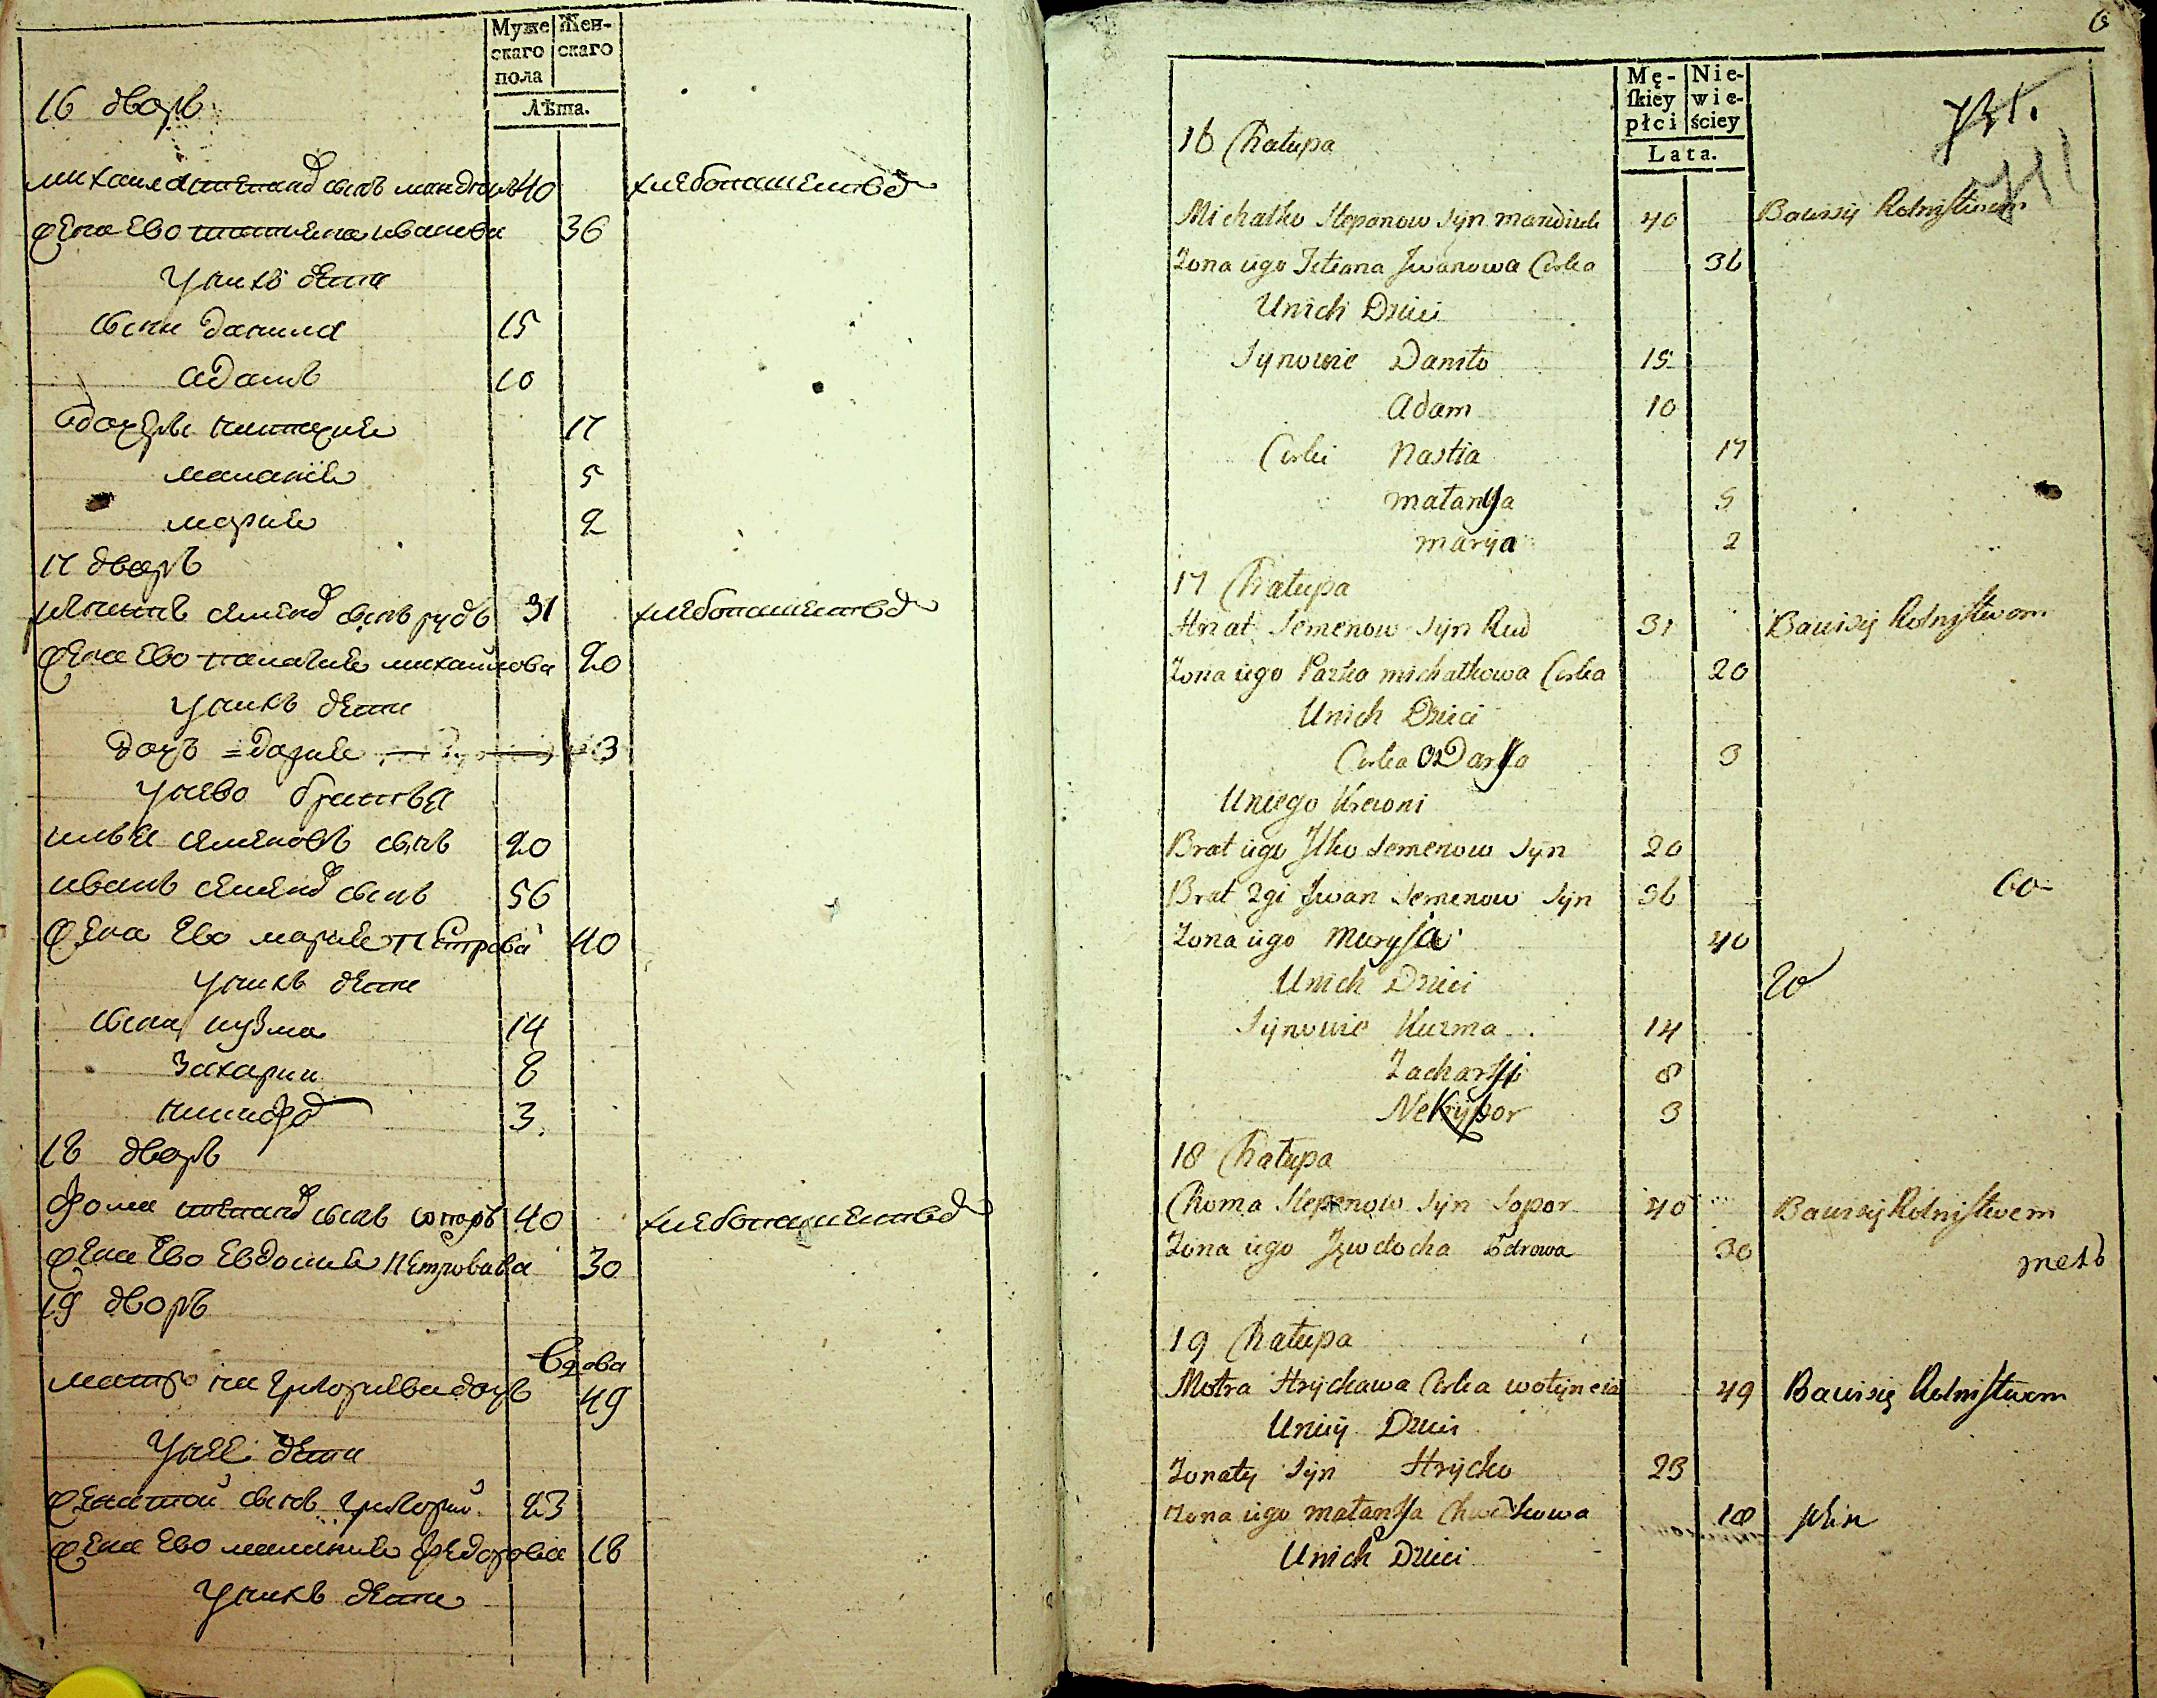 Муже
скаго
пола
Жен-
скаго
Лѣта.
16 дворъ
михаила степанов сынъ мандзюкъ 40 хлебопашеством
жена ево татьяна иванова 36
У нихъ дети
сыны данила 15
адамъ 10
дочери настасия 17
малания 5
мария 2
17 дворъ
игнатъ семенов сынъ рудъ 31 хлебопашеством
жена ево палагия михайлова 20
У нихъ дети
дочь = дария 3
У нево братья
илья семеновъ сынъ 20
иванъ семенов сынъ 56
жена ево мария Петрова 40
У нихъ дети
сыны кузма 14
Захарии 8
никифор 3.
18 дворъ
фома степанов сынъ сопоръ 40 хлебопашеством
жена ево Евдокия Петровава 30
19 дворъ
вдова
матрона григориева дочь 49
У нее дети
женатой сынъ григорий 23
жена ево малания федорова 18
У нихъ дети
6
Mę-
ſkiey
płci
Nie-
wie-
ściey
Lata.
16 Chałupa
Michałko Stepanow Syn mandiuk 40 Bawi się Rolnistwem
Żona iego Tetiana Jwanowa Corka 36
U nich Dzieci
Synowie Daniło 15
Adam 10
Corki Nastia 17
małanya 5
marya 2
17 Chałupa
Hnat Semenow Syn Rud 31 Bawi się Rolnistwem
Żona iego Parka michałkowa Corka 20
U nich Dzieci
Corka Darya 3
U niego Krewni
Brat iego Jlko Semenow Syn 20
Brat 2gi Jwan Semenow Syn 56
Żona iego Marya 40
U nich Dzieci
Synowie Kuzma 14
Zachary 8
Nekypor 3
18 Chałupa
Choma Stepanow Syn Sopor 40 Bawi się Rolnistwem
Żona iego Jewdocha Pedrowa 30
19 Chałupa
Motra Hryckawa Corka wołyneca 49 Bawi się Rolnistwem
U niey Dzieci
Żonaty Syn Hrycko 23
Żona iego małanya Chwedkowa 18
U nich Dzieci